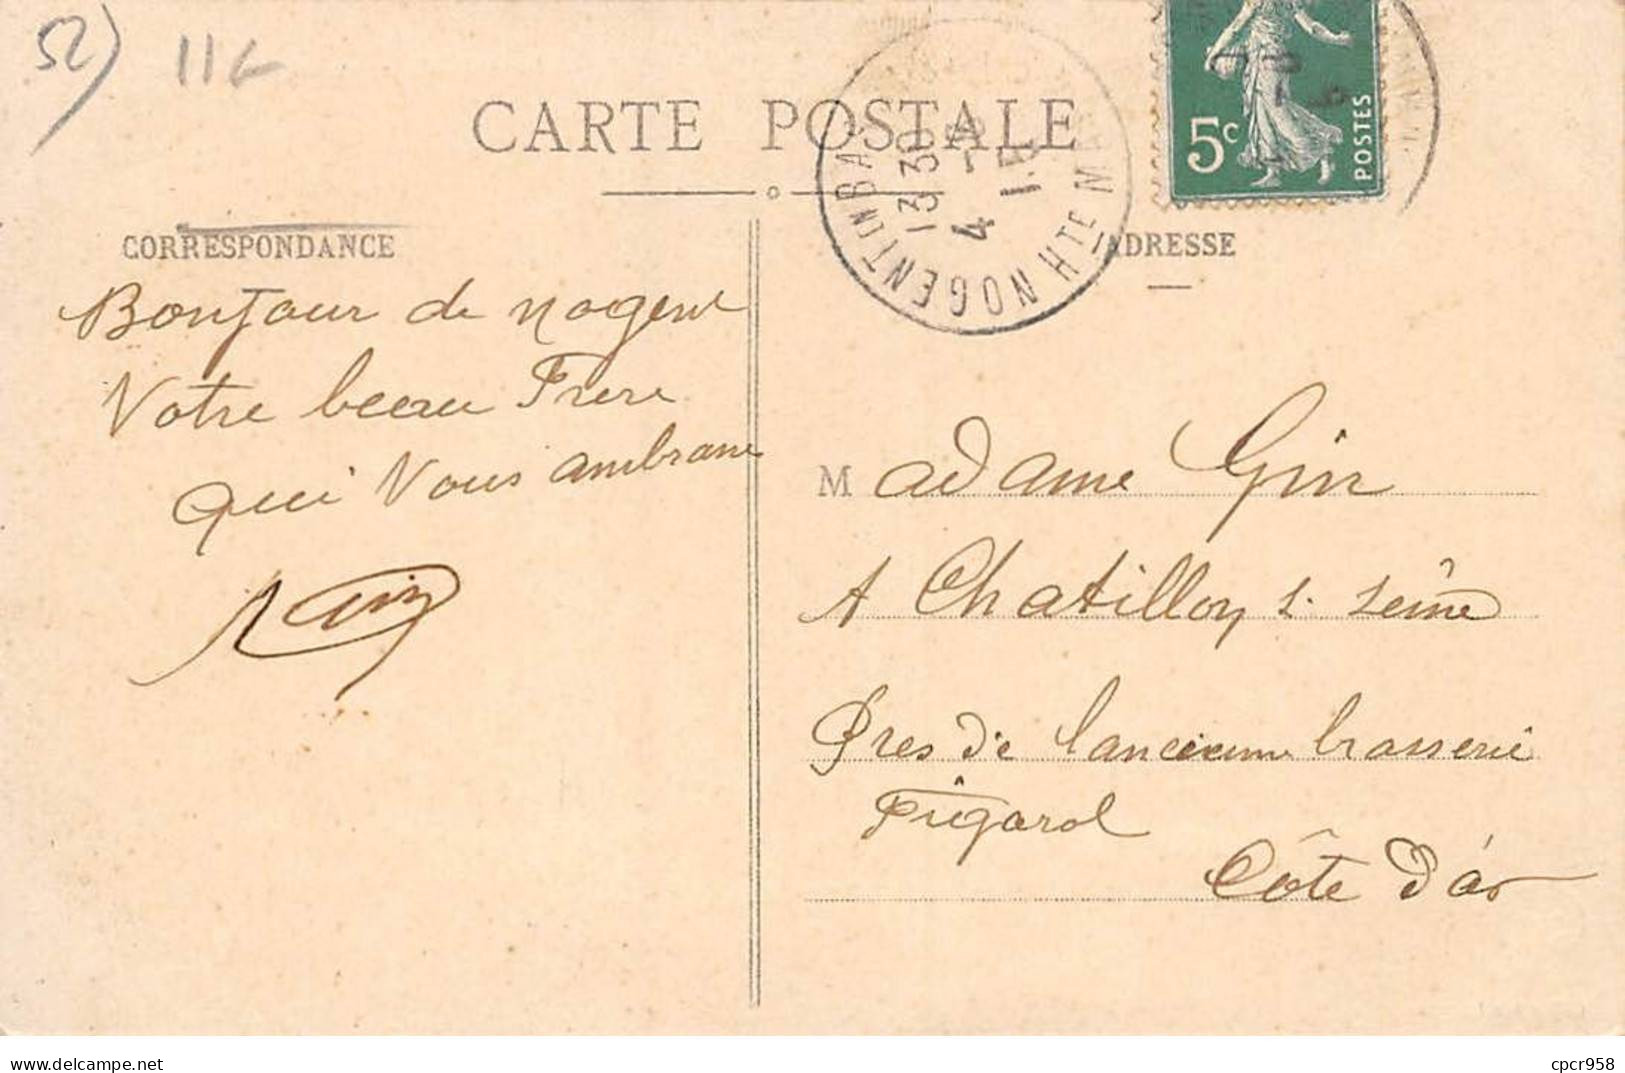 52) 11
CARTE POSTALE
NOGENT EN BAS
HTE M
13 30
4 -4
13
5c
POSTES
CORRESPONDANCE
ADRESSE
Bonjour de nogent
Votre beau Frere
qui Vous ambrane
Madame Gin
A Chatillon s. seine
Pres de lancienne brasserie
Figarol
Côte D'or
delcampe.net
cpcr958